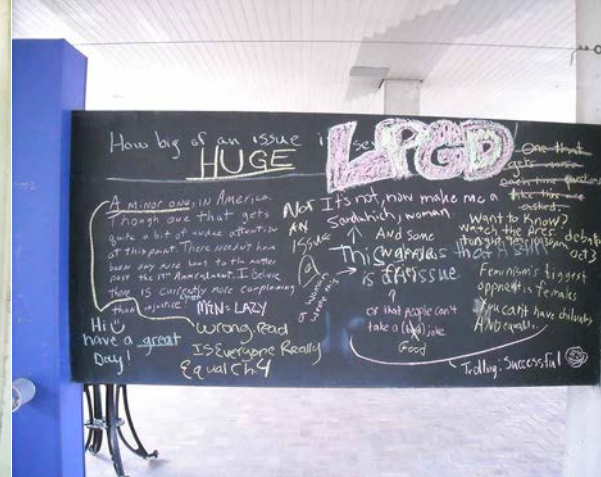 How big of an issue i
HUGE
LPGD
One that
gets worse
each time questions
like this one
asked.
A minor one, in America
Though one that gets
quite a bit of undue attention
at this point. There needn't have
been any more laws to the matter
past the Ammendment. I believe
there IS currently more complaining
than injustice.
MEN = LAZY
wrong, read
IS Everyone Really
Equal Ch. 4
Hi
have a great
Day!
NOT
AN
ISSUE
a woman
wrote this
It's not, now make me a
Sandwhich, woman
And some
fries
This is
is an issue
or that people can't
take a joke
Good
Want to Know?
Watch the pres. debate
tonight
oct 3
Feminism's biggest
opponent is females
You can't have chilvalry
AND equality.
Trolling: Successful